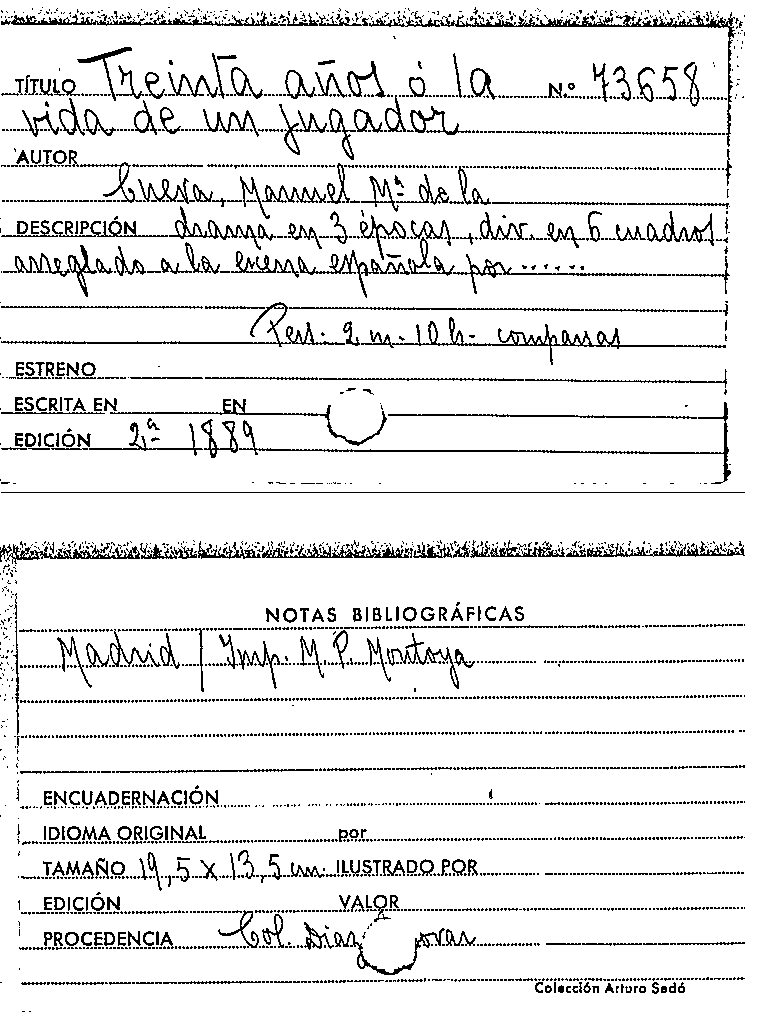 TÍTULO Treinta años ó la N.º 73658
vida de un jugador
AUTOR
Cueva, Manuel Mª de la
DESCRIPCIÓN drama en 3 épocas, div. en 6 cuadros
arreglado a la escena española por ......
Pers: 2 m. 10 h. comparsas
ESTRENO
ESCRITA EN EN
EDICIÓN 2ª 1889
NOTAS BIBLIOGRÁFICAS
Madrid / Imp. M. P. Montoya
ENCUADERNACIÓN
IDIOMA ORIGINAL por
TAMAÑO 19,5 x 13,5 cm. ILUSTRADO POR
EDICIÓN VALOR
PROCEDENCIA Col. Diaz
Colección Arturo Sedó